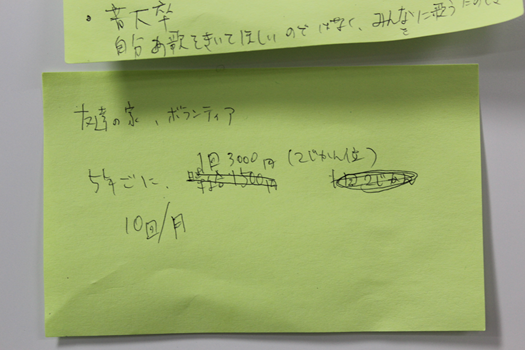 ・音大卒
自分の歌をきいてほしいのではなく、みんなに歌う
友達の家、ボランティア
1回3000円(2じかん位)
5年ごに、時給1500円
10回/月